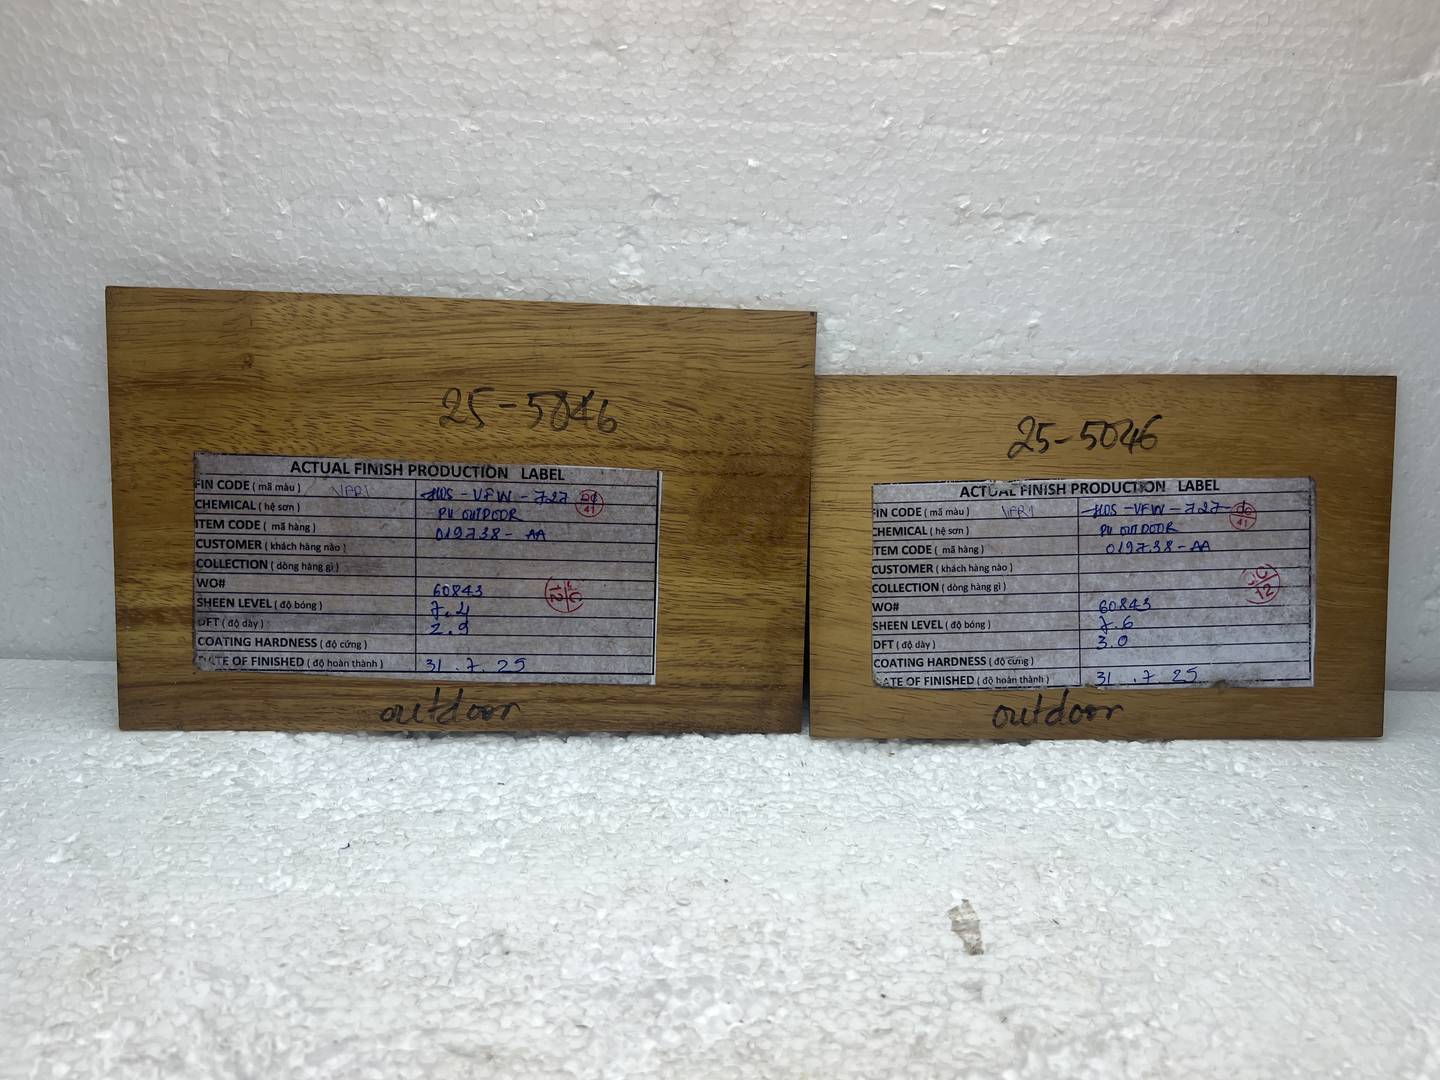 25-5046
ACTUAL FINISH PRODUCTION LABEL
FIN CODE ( mã màu ) VFR1 HDS-VFW-727
CHEMICAL ( hệ sơn ) PU OUTDOOR
ITEM CODE ( mã hàng ) 019738-AA
CUSTOMER ( khách hàng nào )
COLLECTION ( dòng hàng gì )
WO# 60843
SHEEN LEVEL ( độ bóng ) 7.4
DFT ( độ dày ) 2.9
COATING HARDNESS ( độ cứng )
DATE OF FINISHED ( độ hoàn thành ) 31.7.25
outdoor
25-5046
ACTUAL FINISH PRODUCTION LABEL
FIN CODE ( mã màu ) VFR1 HDS-VFW-727
CHEMICAL ( hệ sơn ) PU OUTDOOR
ITEM CODE ( mã hàng ) 019738-AA
CUSTOMER ( khách hàng nào )
COLLECTION ( dòng hàng gì )
WO# 60843
SHEEN LEVEL ( độ bóng ) 7.6
DFT ( độ dày ) 3.0
COATING HARDNESS ( độ cứng )
DATE OF FINISHED ( độ hoàn thành ) 31.7 25
outdoor